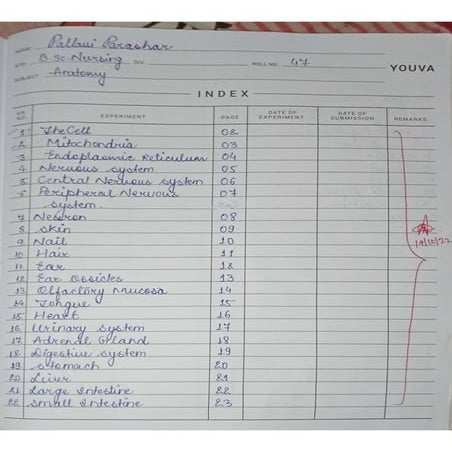 NAME: Pallavi Parashar
STD.: B.Sc. Nursing DIV. ROLL NO.: 47
YOUVA
SUBJECT: Anatomy
INDEX
SR. NO. EXPERIMENT PAGE DATE OF EXPERIMENT DATE OF SUBMISSION REMARKS
1. The Cell 02
2. Mitochondria 03
3. Endoplasmic Reticulum 04
4. Nervous system 05
5. Central Nervous system 06
6. Peripheral Nervous 07
system.
7. Neuron 08
8. Skin 09
9. Nail 10
10. Hair 11
11. Ear 12
12. Ear Ossicles 13
13. Olfactory Mucosa 14
14. Tongue 15
15. Heart 16
16. Urinary system 17
17. Adrenal Gland 18
18. Digestive system 19
19. Stomach 20
20. Liver 21
21. Large Intestine 22
22. Small Intestine 23
19/10/22